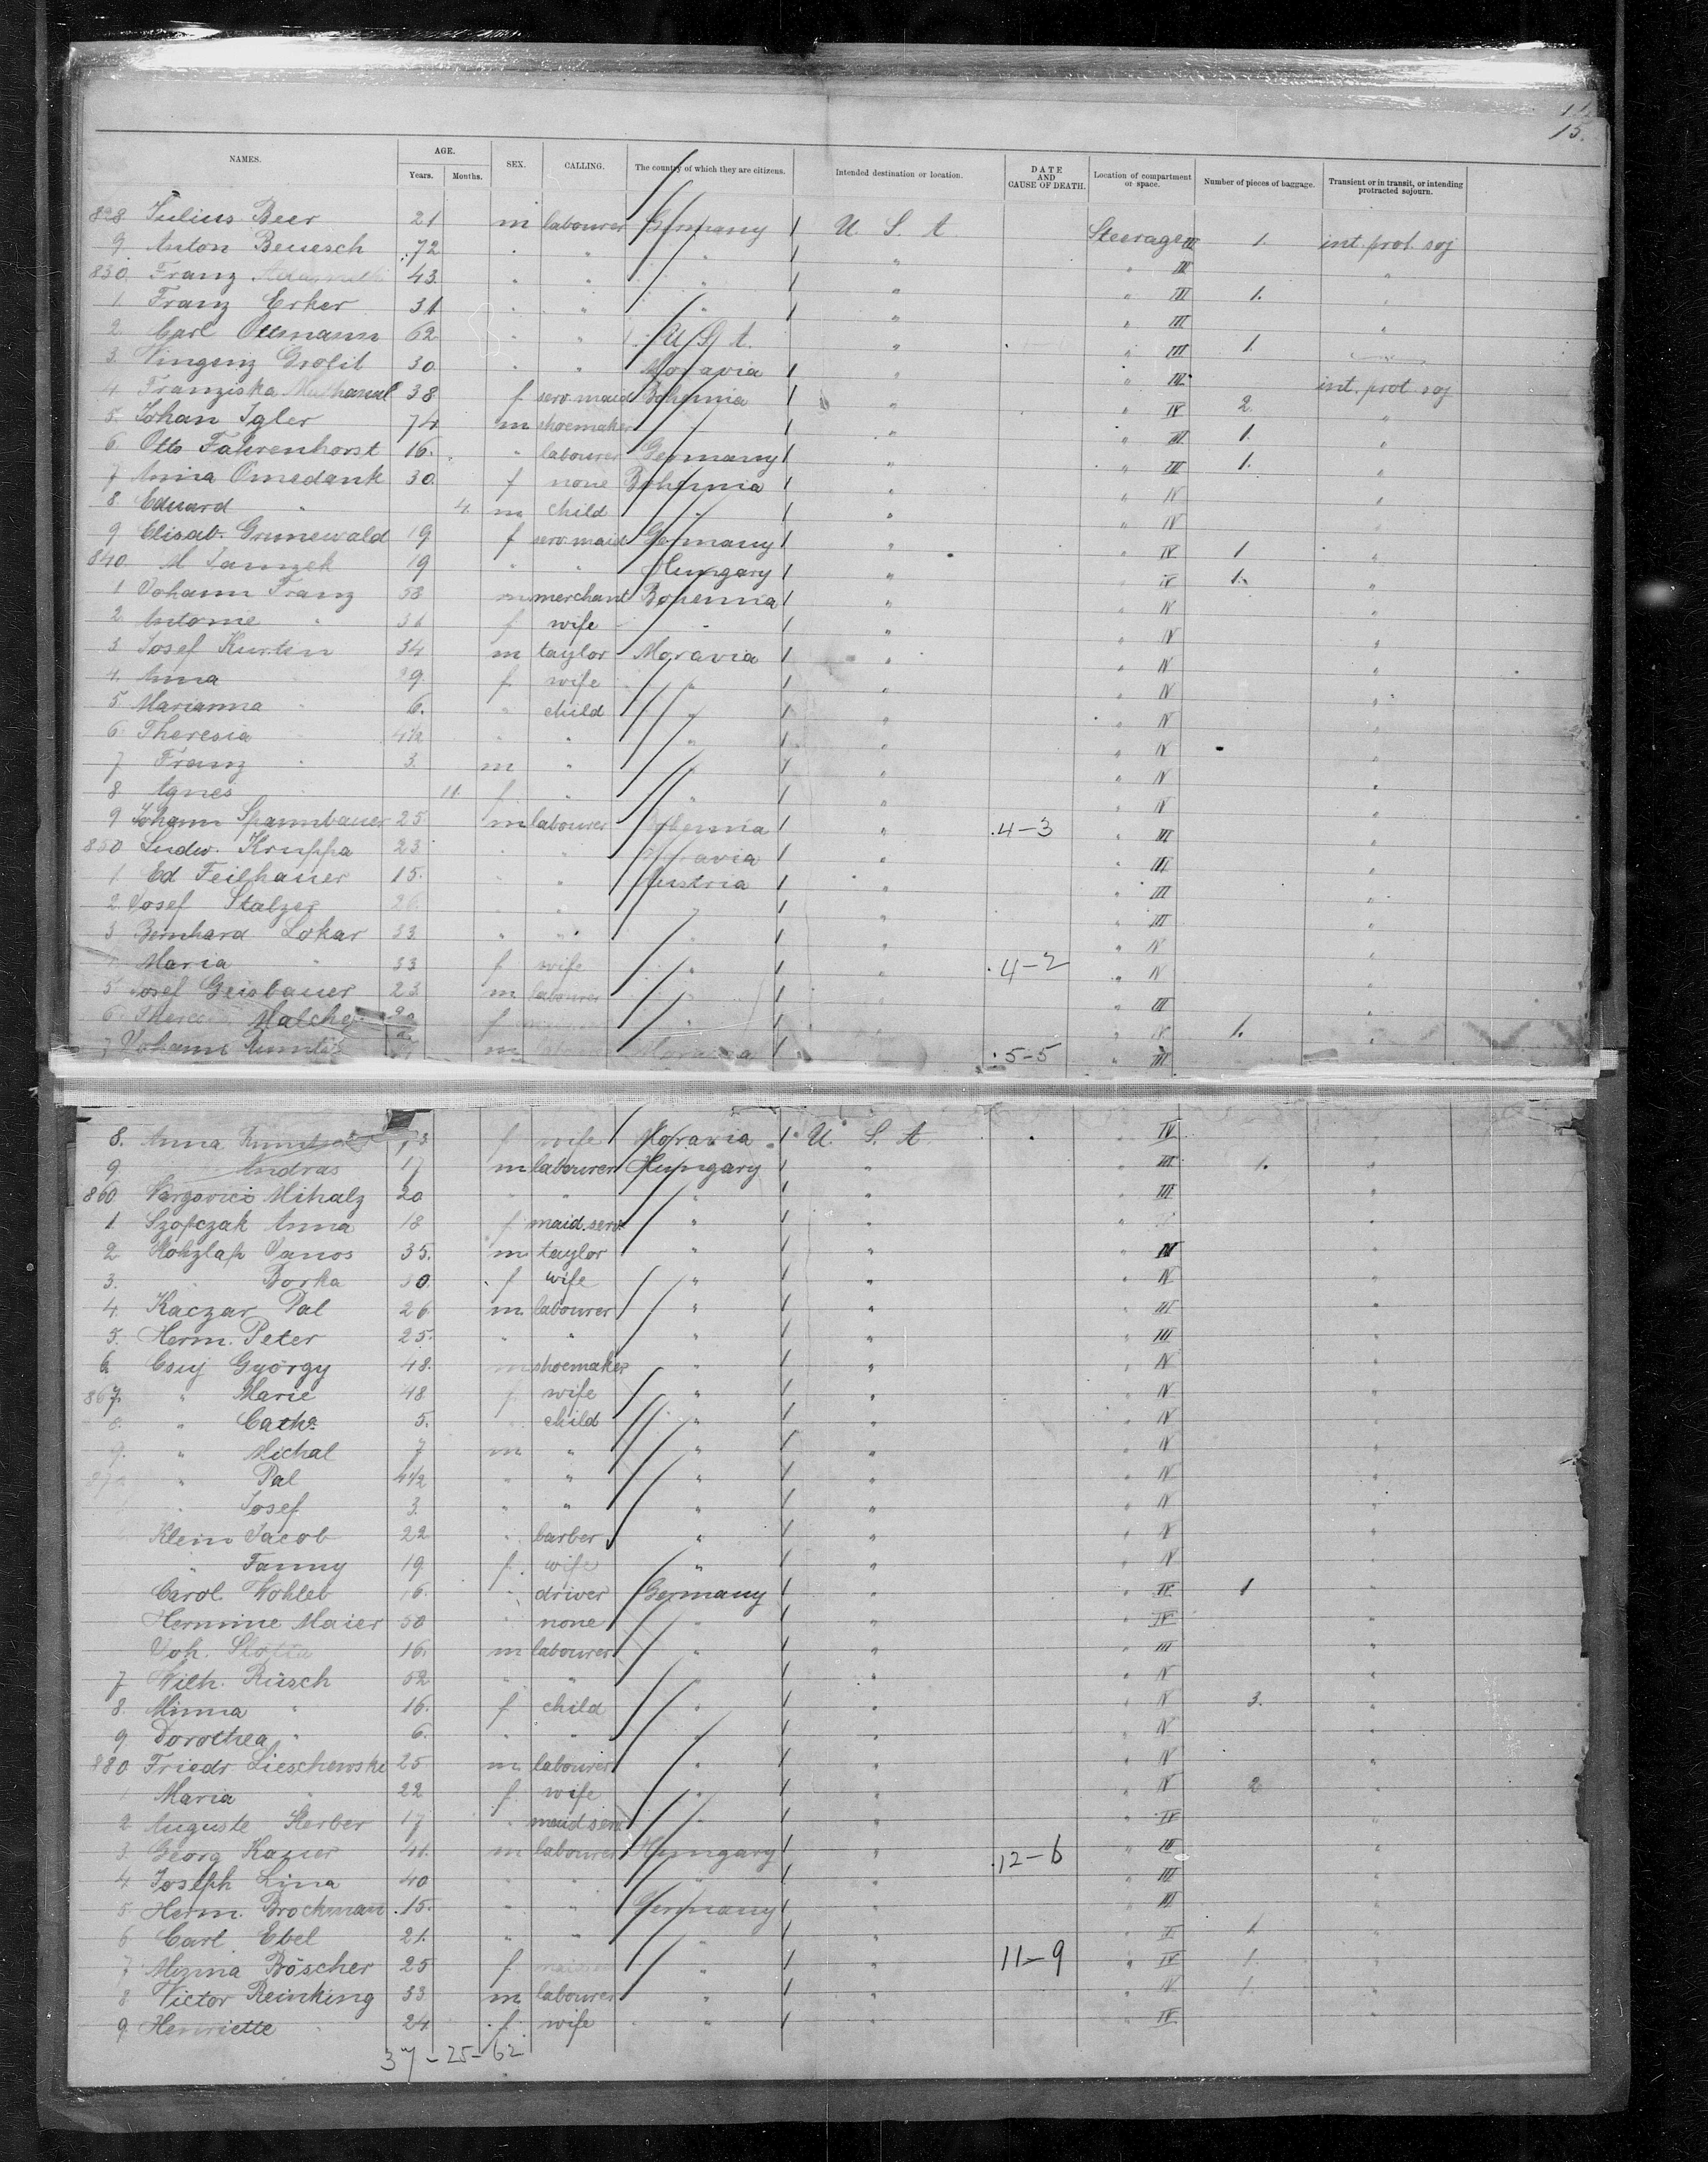 15.
NAMES. AGE. Years. Months. SEX. CALLING. The country of which they are citizens. Intended destination or location. DATE AND CAUSE OF DEATH. Location of compartment or space. Number of pieces of baggage. Transient or in transit, or intending protracted sojourn.
828 Julius Beer 21 m labourer Germany 1 U. S. A Steerage III 1. int. prot. soj
9 Anton Benesch 72 " " " 1 " " III "
830. Franz 43. " " " 1 " " III 1. "
1 Franz Erker 31 " " " 1 " " III "
2. Carl Ottmann 62 " " U. S. A. " " III 1.
3. Vinzenz Grolit 30 " " Moravia 1 " " III int. prot. soj
4. Franziska 38 f serv. maid Bohemia 1 " " IV 2. "
5. Johan Igler 74 m shoemaker " 1 " " III 1. "
6. Otto Fahrenhorst 16. " labourer Germany 1 " " III 1. "
7 Anna Omedank 30. f none Bohemia 1 " " IV "
8. Eduard " 4. m child " 1 " " IV "
9 Elisab. Grunewald 19 f serv. maid Germany 1 " " IV 1 "
840. M 19 " " Hungary 1 " " IV 1. "
1 Johann Franz 58 m merchant Bohemia 1 " " IV "
2. Antonie " 36 f wife " 1 " " IV "
3 Josef Kurtin 34 m taylor Moravia 1 " " IV "
4. Anna " 29. f wife " 1 " " IV "
5. Marianna " 6. " child " 1 " " IV "
6 Theresia " 4½ " " " 1 " " IV "
7. Franz " 3. m " " 1 " " IV "
8 Agnes 11. f " " 1 " " IV "
9 Johann Spannbauer 25 m labourer Bohemia 1 " 4-3 " III "
850 Ludw. Kruppa 23 " " Moravia 1 " " III "
1 Ed Feilhauer 15. " " Austria 1 " " III "
2. Josef Stalzer 26. " " " 1 " " III "
3 Bernhard Lokar 33 " " " 1 " " IV "
Maria " 33 f wife " 1 " 4-2 " IV "
5. Josef Geisbauer 23 m labourer " 1 " " III "
6 f " 1 " IV 1. "
7 Johann m Moravia 1 5-5 " III
8. Anna f wife Moravia 1 U. S. A. " IV
9. Andras 17 m labourer Hungary 1 " " III 1. "
860 Vargovici Mihalz 20 " " " 1 " " III "
1 Szopczak Anna 18 f maid.serv. " 1 " "
2 Janos 35. m taylor " 1 " IV "
3. " Borka 30. f wife " 1 " " IV "
4. Kaczar Pal 26 m labourer " 1 " " III "
5. Herm. Peter 25. " " " 1 " " III "
6 Csuj György 48. m shoemaker " 1 " " IV "
867. " Marie 48 f wife " 1 " " IV "
8. " Cath. 5. " child " 1 " " IV "
9. " Michal 7 m " " 1 " " IV "
870 " Pal 4½ " " " 1 " " IV "
" Josef 3. " " " 1 " " IV "
Klein Jacob 22 " barber " 1 " " IV "
" Fanny 19 f. wife " 1 " " IV
Carol. Wohleb 16. " driver Germany 1 " " IV 1 "
Hermine Maier 50 " none " 1 " " IV "
Joh. 16. m labourer " 1 " " III "
7 Wilh. Rüsch 52 " " " 1 " " IV "
8. Minna " 16. f child " 1 " " IV 3. "
9. Dorothea " 6. " " " 1 " " IV "
880 Friedr Lieschewski 25 m labourer " 1 " " IV "
1 Maria " 22 f wife " 1 " " IV 2 "
2 Auguste Kerber 17 " maid serv " 1 " " IV "
3. Georg Kazur 41. m labourer Hungary 1 " 12-6 " III "
4 Joseph Lina 40 " " " 1 " " III "
5 Herm. Brockmann 15. " " Germany 1 " " III "
6 Carl Ebel 21. " " " 1 " " 1. "
7 Böscher 25 f " 1 " 11-9 " IV 1. "
8 Victor Reinking 33 m labourer " 1 " " IV 1. "
9 Henriette " 24 f. wife " 1 " " IV "
37-25-62